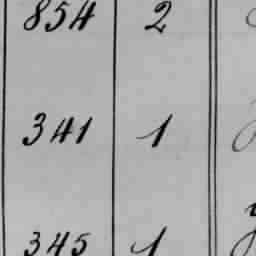 854 2
341 1
345 1